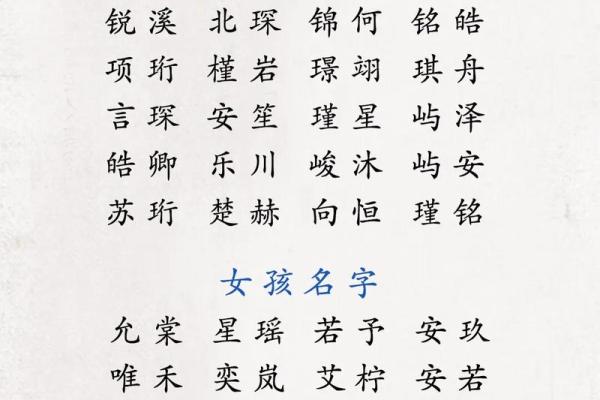 锐溪 北琛 锦何 铭皓
项珩 槿岩 璟翊 琪舟
言琛 安笙 瑾星 屿泽
皓卿 乐川 峻沐 屿安
苏珩 楚赫 向恒 瑾铭
女孩名字
允棠 星瑶 若予 安玖
唯禾 奕岚 艾柠 安若